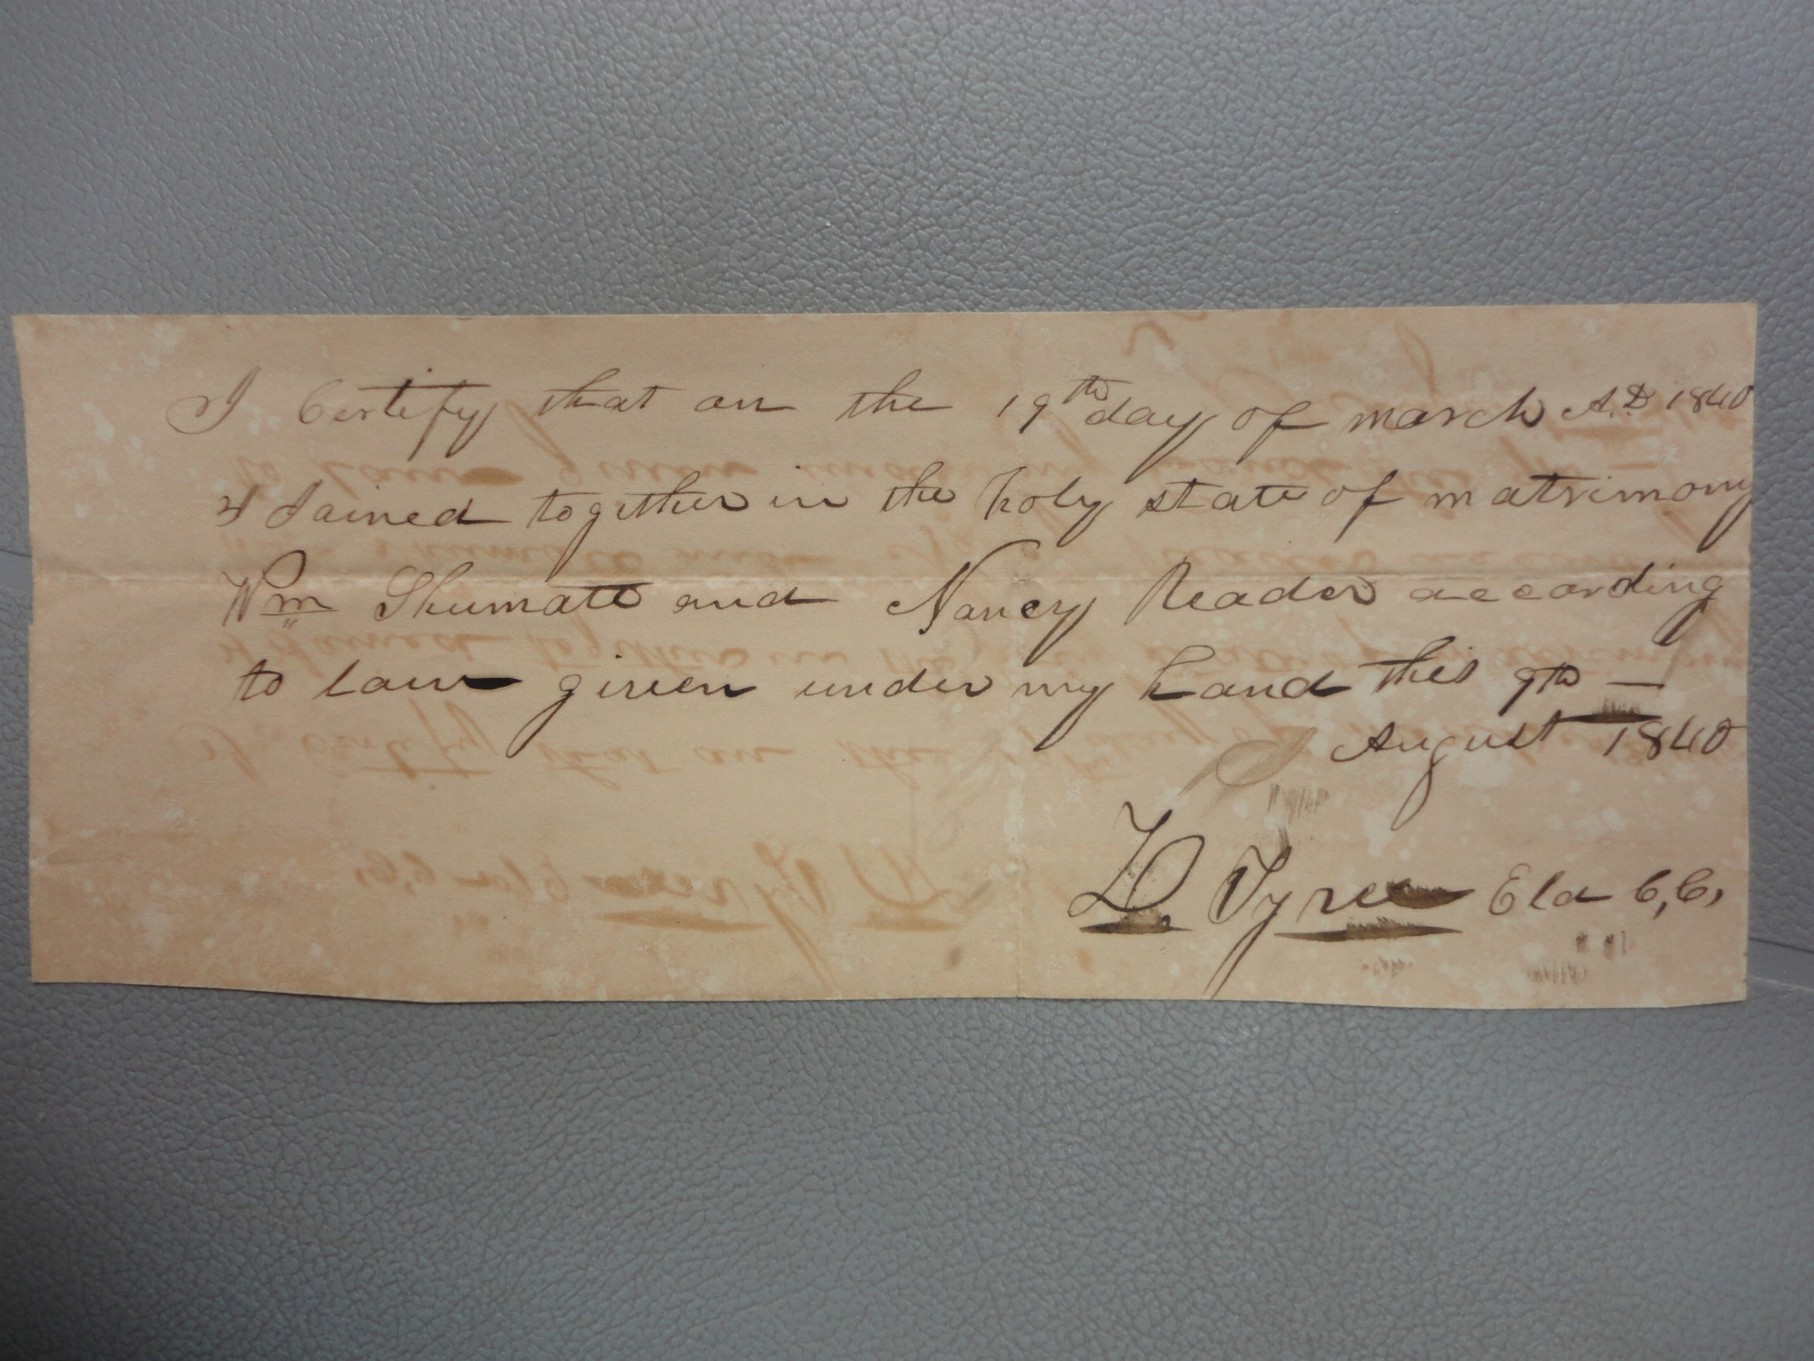 I Certify that on the 19th day of march A.D 1840
I Joined together in the holy state of matrimony
Wm Shumate and Nancy Reader according
to law given under my hand this 9th —
August 1840
D. Tyree Eld C,C,